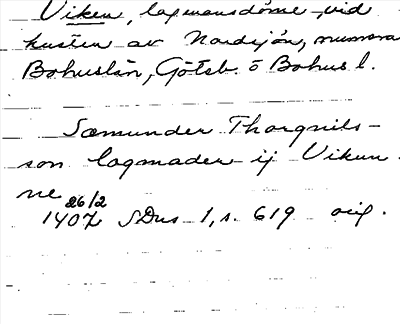 Viken, lagmansdöme vid
kusten av Nordsjön, numera
Bohuslän, Göteb. o Bohus l.
Sæmunder Thorgnils-
son lagmader ij Vikun
ne 26/2
1407 SDns 1, s. 619 orig.